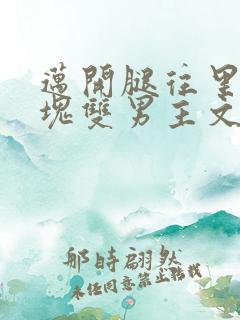 邁開腿往里
塊雙男主文
那時翩然
未任同意禁止轉載